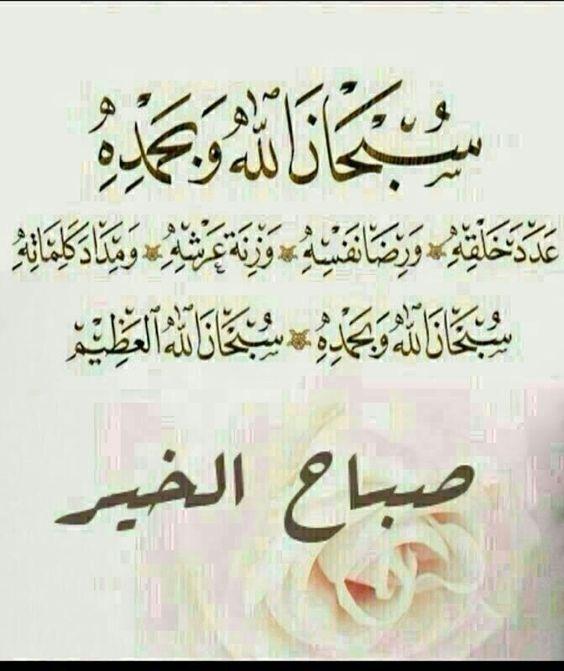 سُبْحَانَ اللّٰهِ وَبِحَمْدِهِ
عَدَدَ خَلْقِهِ وَرِضَا نَفْسِهِ وَزِنَةَ عَرْشِهِ وَمِدَادَ كَلِمَاتِهِ
سُبْحَانَ اللّٰهِ وَبِحَمْدِهِ سُبْحَانَ اللّٰهِ العَظِيْمِ
صباح الخير